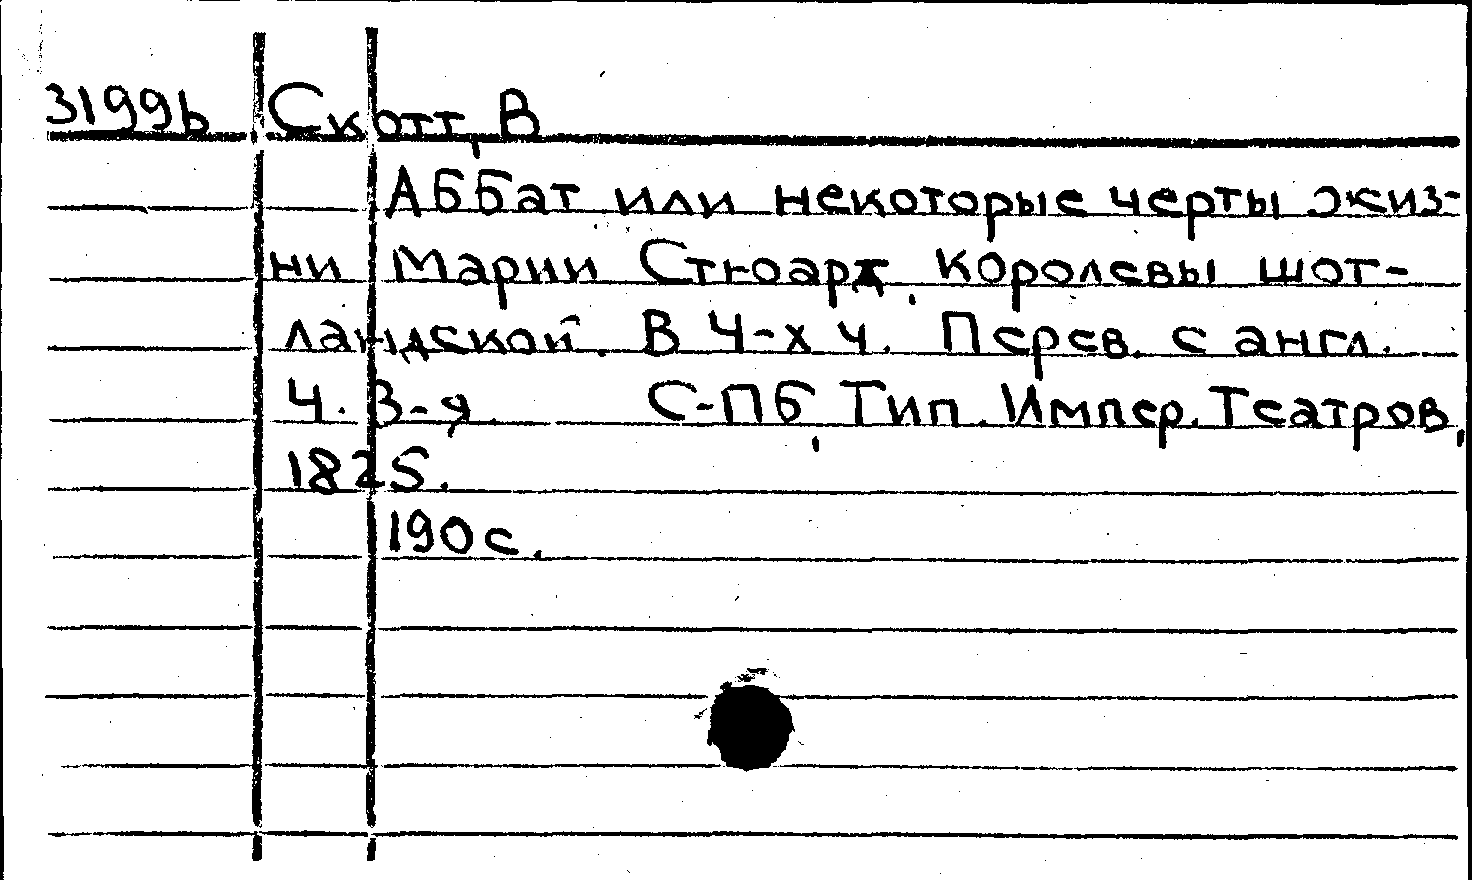 3199b Скотт, В
Аббат или некоторые черты жиз-
ни Марии Стюард, королевы шот-
ландской. В 4-х ч. Перев. с англ.
Ч. 3-я. С-Пб, Тип. Импер. Театров,
1825.
190 с.